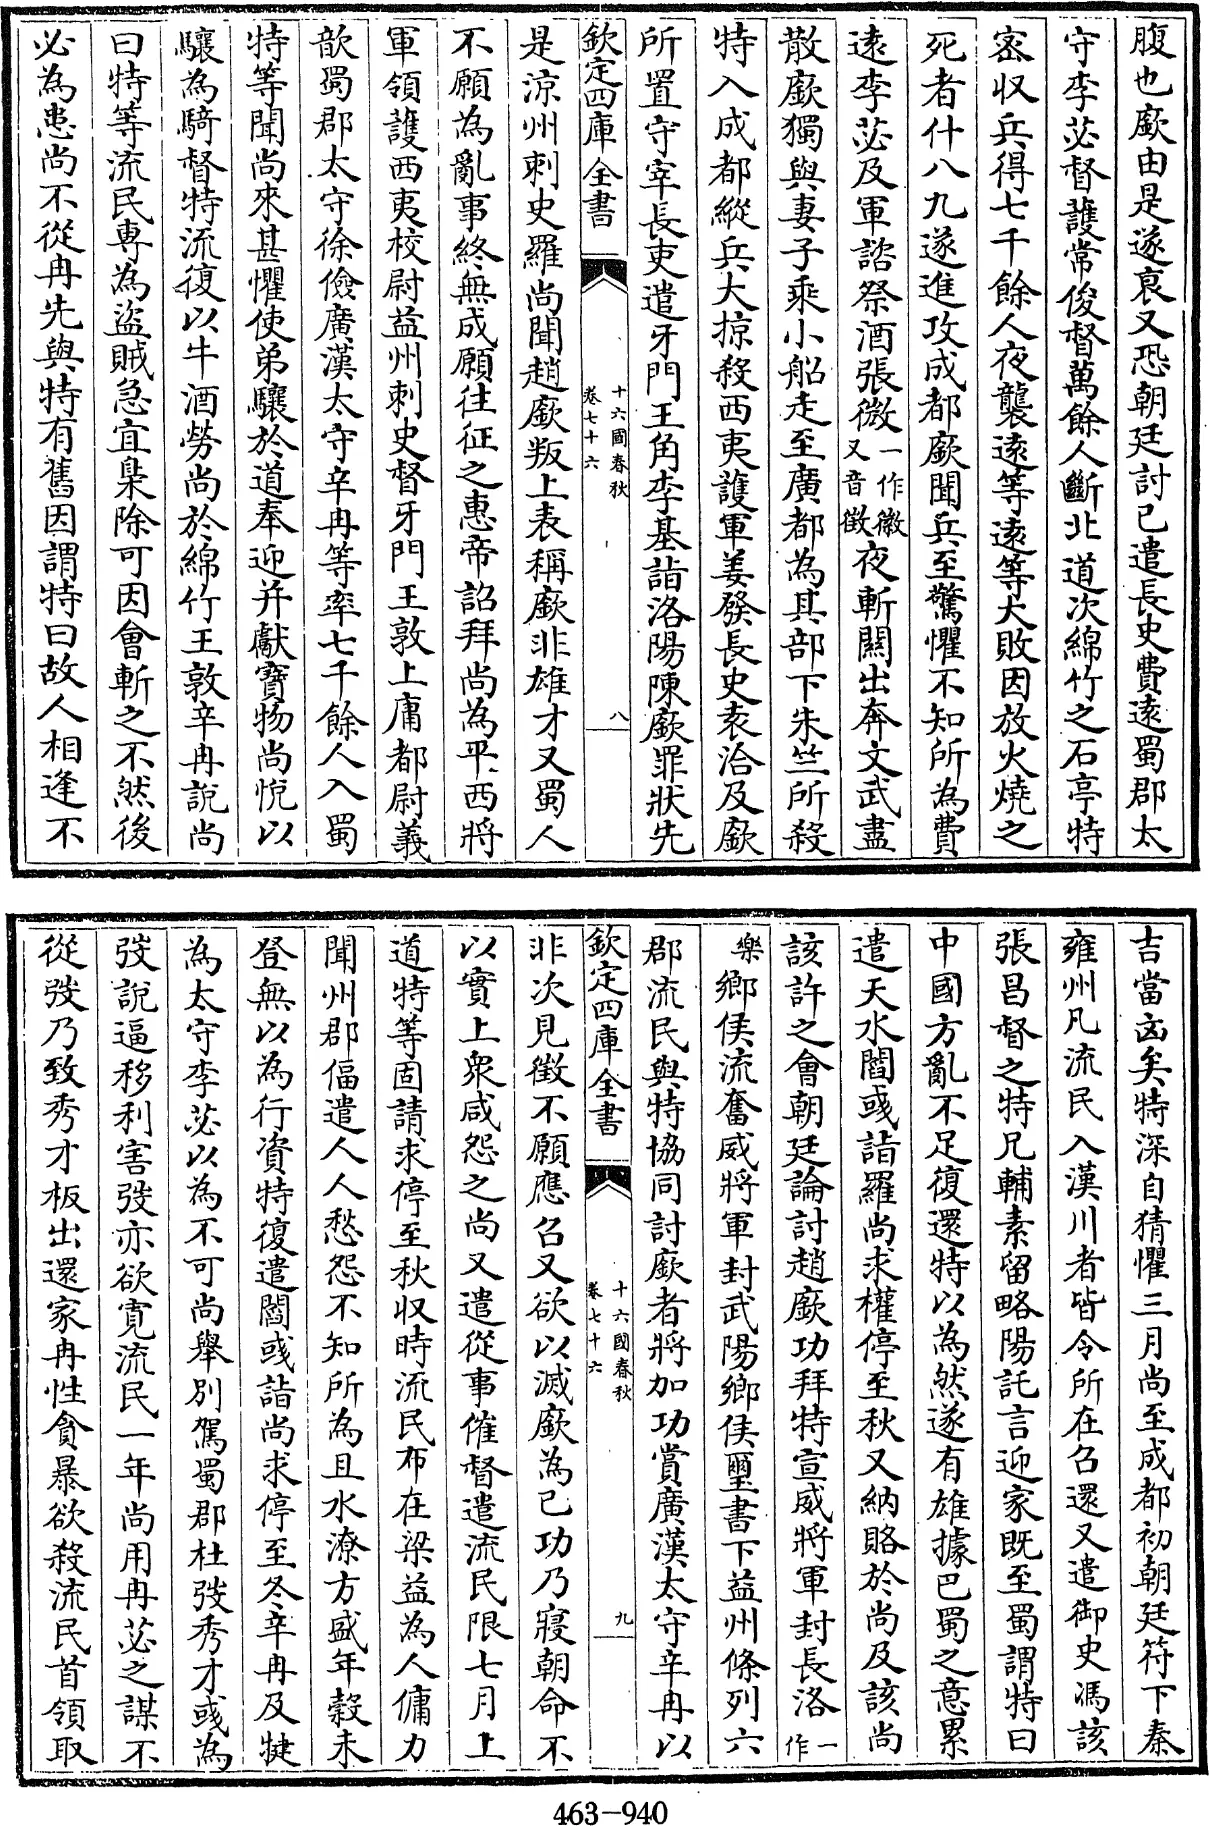 腹也廞由是遂衰又恐朝廷討己遣長史費逺蜀郡太
守李苾督䕶常俊督萬餘人斷北道次綿竹之石亭特
宻収兵得七千餘人夜襲逺等逺等大敗因放火燒之
死者什八九遂進攻成都廞聞兵至驚懼不知所為費
逺李苾及軍諮祭酒張微一作㣲又音徴夜斬關出奔文武盡
散廞獨與妻子乘小船走至廣都為其部下朱竺所殺
特入成都縱兵大掠殺西夷䕶軍姜發長史袁洽及廞
所置守宰長吏遣牙門王角李基詣洛陽陳廞罪狀先
欽定四庫全書
十六國春秋
卷七十六
八
是涼州刺史羅尚聞趙廞叛上表稱廞非雄才又蜀人
不願為亂事終無成願往征之惠帝詔拜尚為平西將
軍領䕶西夷校尉益州刺史督牙門王敦上庸都尉義
歆蜀郡太守徐儉廣漢太守辛冉等率七千餘人入蜀
特等聞尚來甚懼使弟驤於道奉迎并獻寶物尚悅以
驤為騎督特流復以牛酒勞尚於綿竹王敦辛冉説尚
曰特等流民専為盗賊急宜梟除可因㑹斬之不然後
必為患尚不從冉先與特有舊因謂特曰故人相逢不
吉當㐫矣特深自猜懼三月尚至成都初朝廷符下秦
雍州凡流民入漢川者皆令所在召還又遣御史馮該
張昌督之特兄輔素留略陽託言迎家既至蜀謂特曰
中國方亂不足復還特以為然遂有雄據巴蜀之意累
遣天水閻彧詣羅尚求權停至秋又納賂於尚及該尚
該許之㑹朝廷論討趙廞功拜特宣威將軍封長洛一作
樂鄉侯流奮威將軍封武陽鄉侯璽書下益州條列六
郡流民與特協同討廞者將加功賞廣漢太守辛冉以
欽定四庫全書
十六國春秋
卷七十六
九
非次見徴不願應召又欲以滅廞為己功乃寢朝命不
以實上衆咸怨之尚又遣從事催督遣流民限七月上
道特等固請求停至秋収時流民布在梁益為人傭力
聞州郡偪遣人人愁怨不知所為且水潦方盛年榖未
登無以為行資特復遣閻彧詣尚求停至冬辛冉及犍
為太守李苾以為不可尚舉別駕蜀郡杜弢秀才彧為
弢説逼移利害弢亦欲寛流民一年尚用冉苾之謀不
從弢乃致秀才板出還家冉性貪暴欲殺流民首領取
463-940